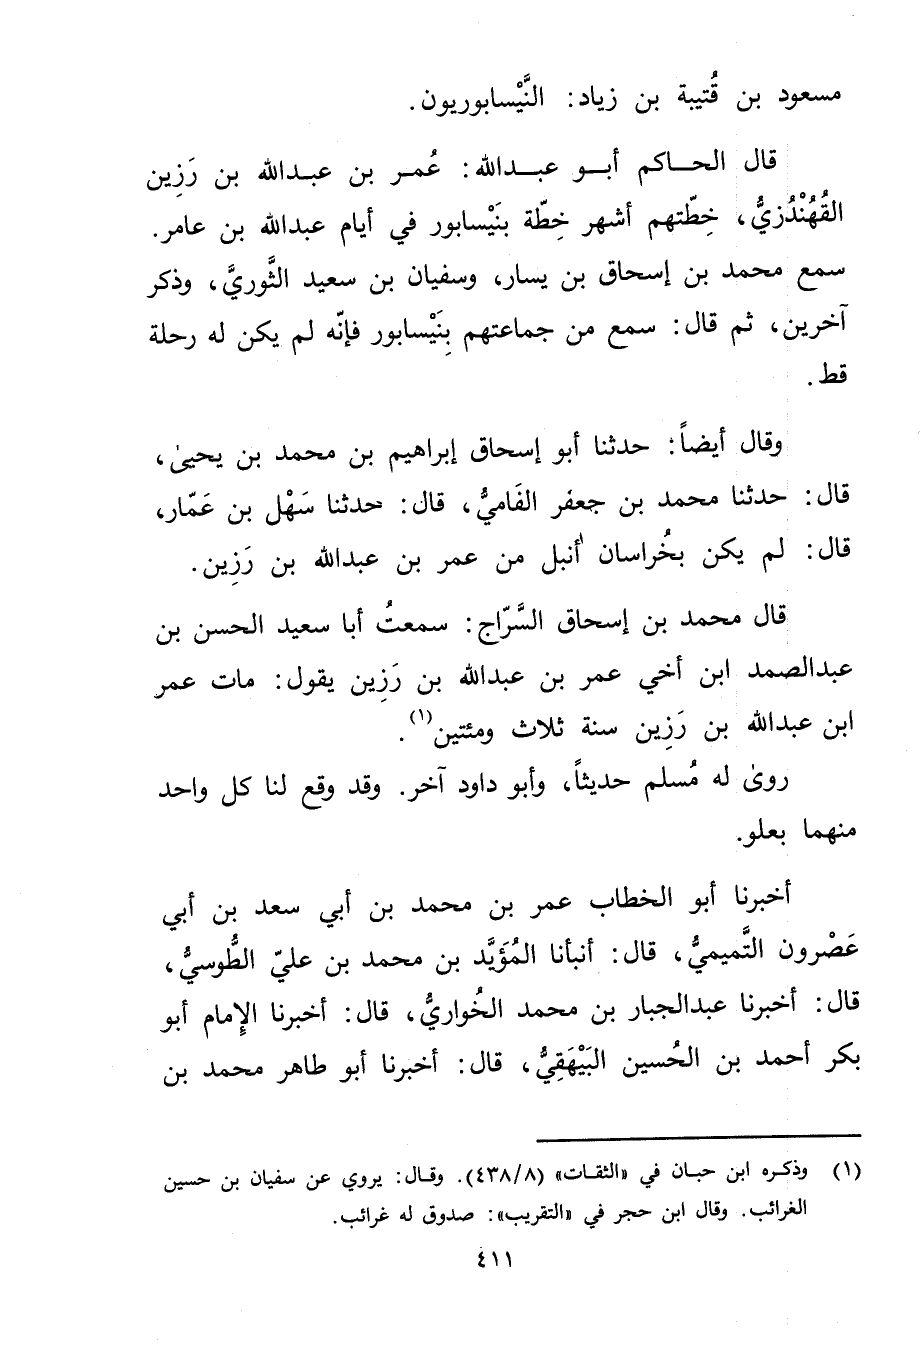 مسعود بن قُتيبة بن زياد: النَّيْسابوريون.
قال الحـاكم أبـو عبـدالله: عُمـر بن عبـدالله بن رَزِين
القُهُنْدُزيُّ، خِطّتهم أشهر خِطّة بنَيْسابور في أيام عبدالله بن عامر.
سمع محمد بن إسحاق بن يسار، وسفيان بن سعيد الثَّوريَّ، وذكر
آخرين، ثم قال: سمع من جماعتهم بِنَيْسابور فإنّه لم يكن له رحلة
قط.
وقال أيضاً: حدثنا أبو إسحاق إبراهيم بن محمد بن يحيىٰ،
قال: حدثنا محمد بن جعفر الفَاميُّ، قال: حدثنا سَهْل بن عَمّار،
قال: لم يكن بخُراسان أنبل من عمر بن عبدالله بن رَزِين.
قال محمد بن إسحاق السَّرّاج: سمعتُ أبا سعيد الحسن بن
عبدالصمد ابن أخي عمر بن عبدالله بن رَزِين يقول: مات عمر
ابن عبدالله بن رَزِين سنة ثلاث ومئتين(١).
روىٰ له مُسلم حديثاً، وأبو داود آخر. وقد وقع لنا كل واحد
منهما بعلو.
أخبرنا أبو الخطاب عمر بن محمد بن أبي سعد بن أبي
عَصْرون التَّميميُّ، قال: أنبأنا المُؤَيَّد بن محمد بن عليّ الطُّوسيُّ،
قال: أخبرنا عبدالجبار بن محمد الخُواريُّ، قال: أخبرنا الإمام أبو
بكر أحمد بن الحُسين البَيْهَقِيُّ، قال: أخبرنا أبو طاهر محمد بن
(١) وذكـره ابن حبان في «الثقات» (٤٣٨/٨). وقـال: يروي عن سفيان بن حسين
الغرائب. وقال ابن حجر في «التقريب»: صدوق له غرائب.
٤١١